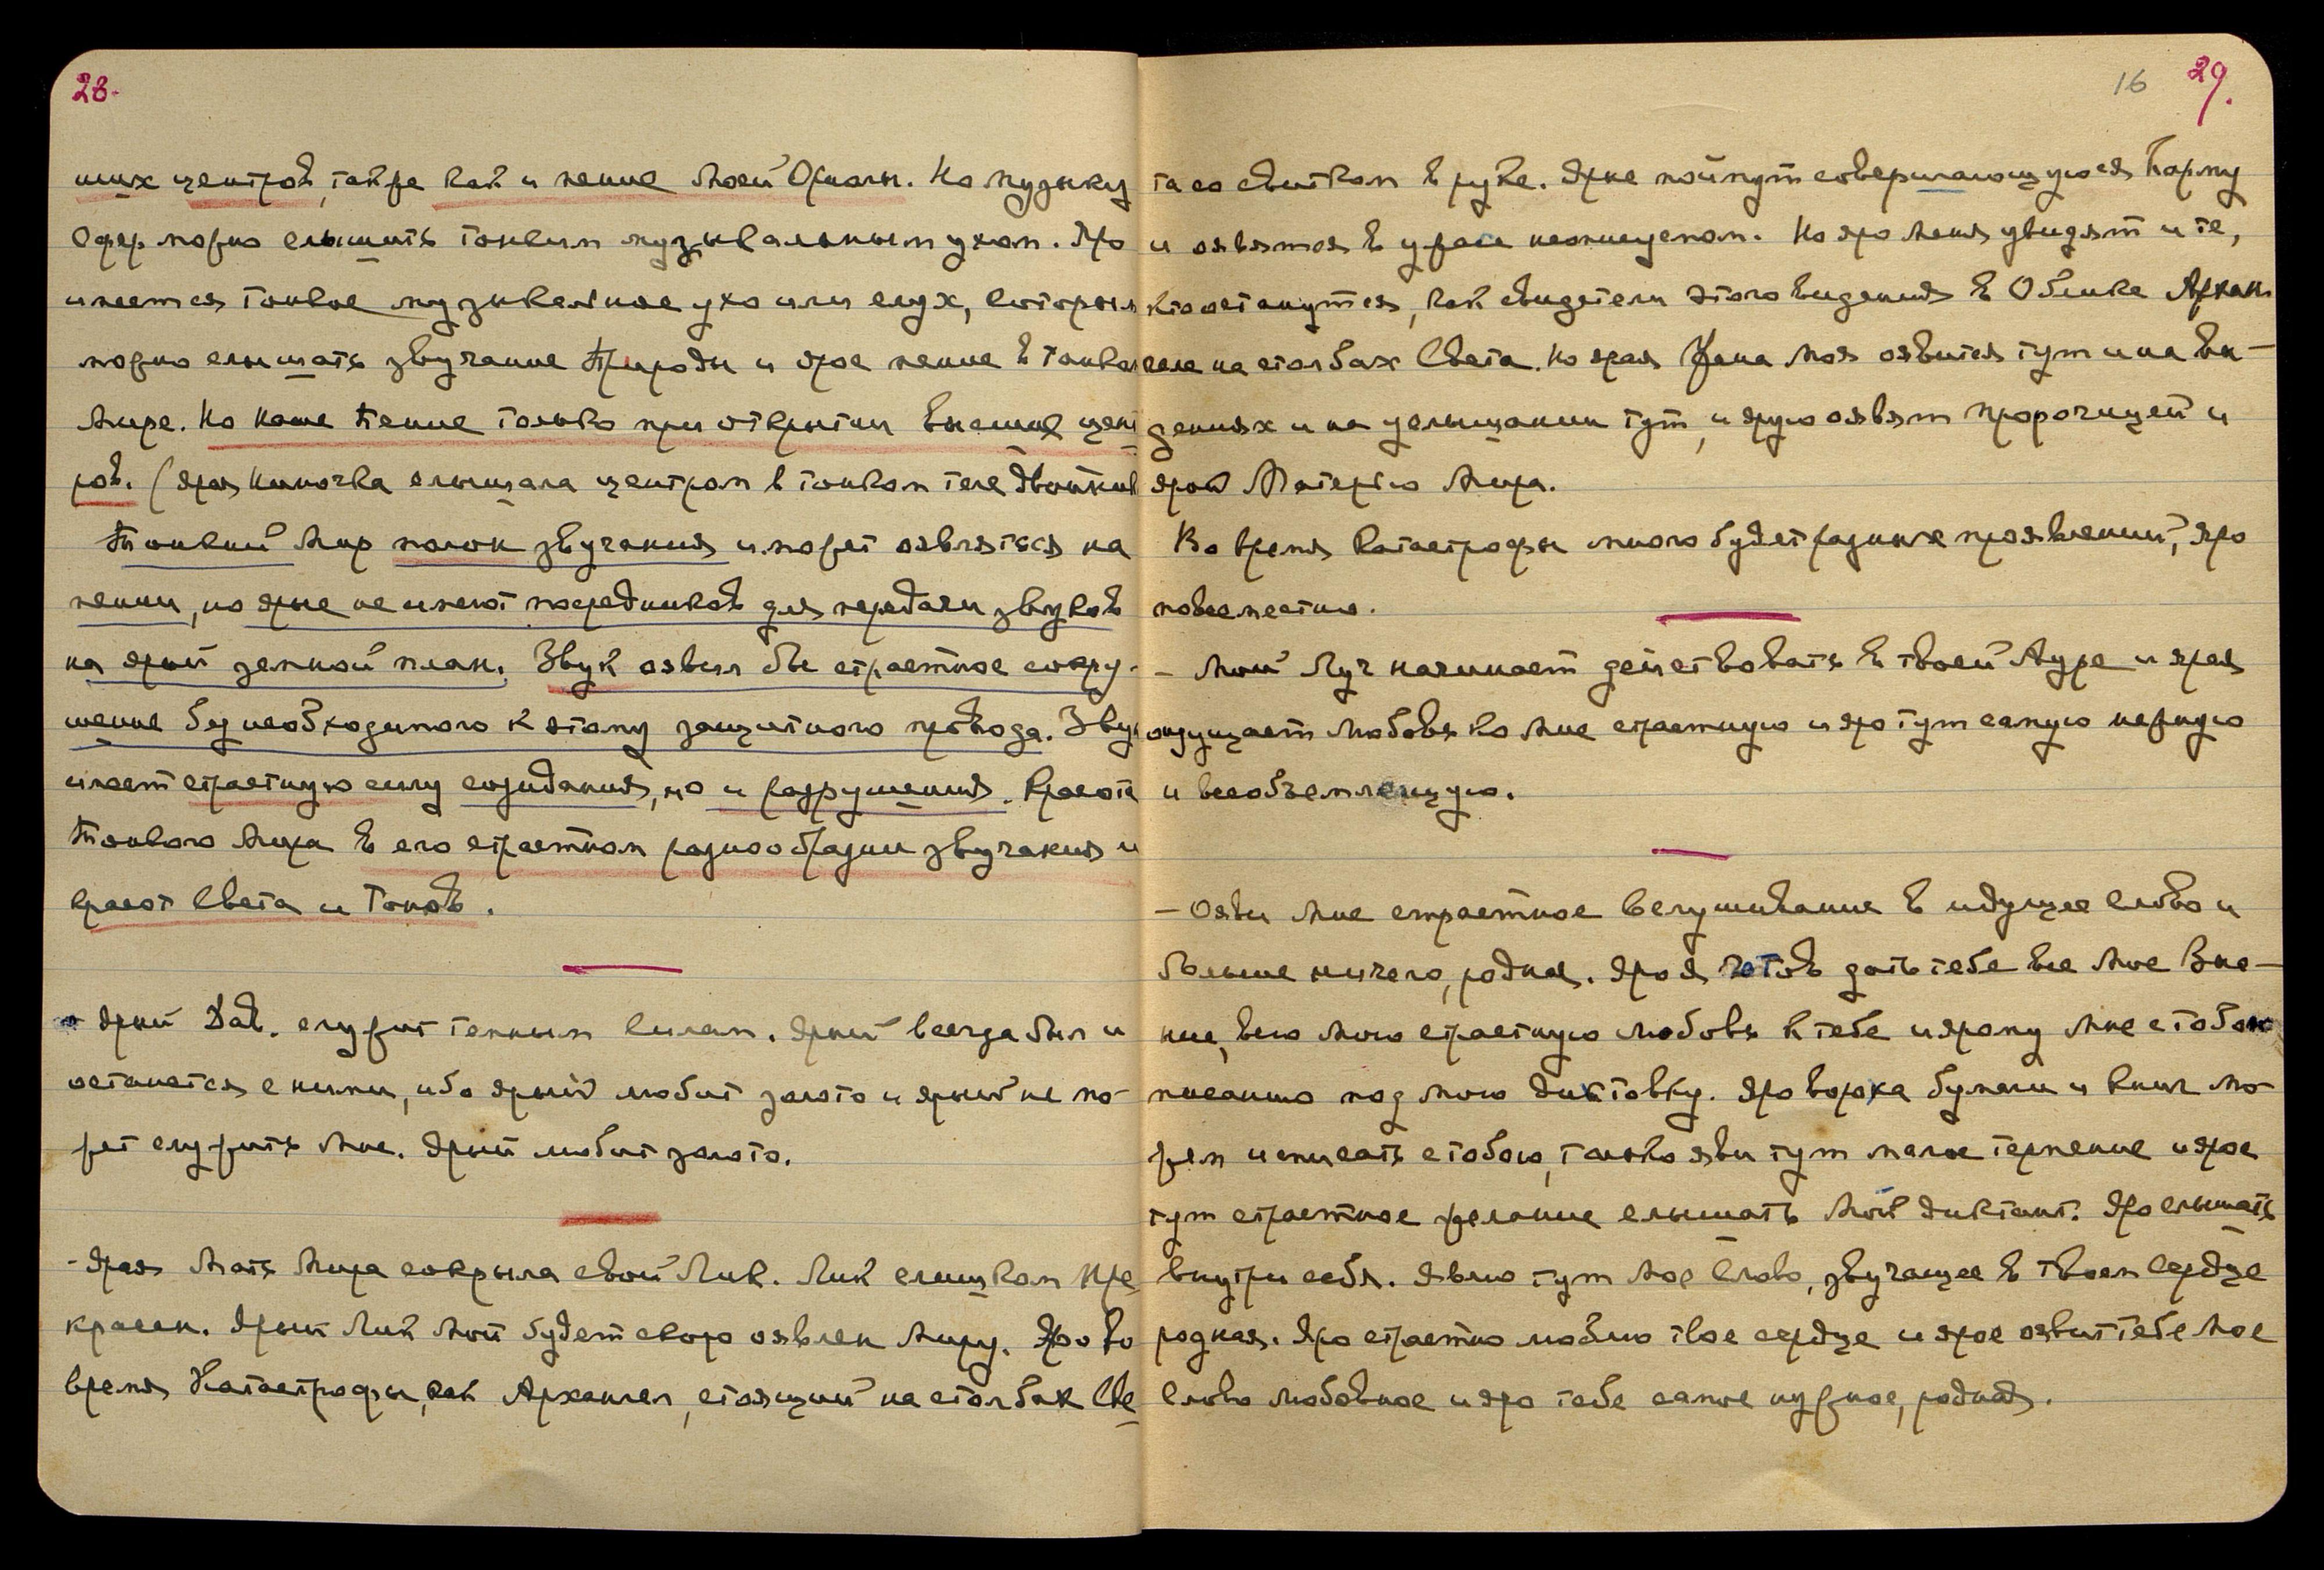 28.
ших центров, также как и пение Моей Фиалы. Но музыку
Сфер можно слышить тонким музыкальным ухом. Яро
имеется тонкое музыкальное ухо или слух, которым
можно слышать звучание Природы и ярое пение в Тонком
Мире. Но наше Пение только при открытии высших цент
ров. (Ярая Ниночка слышала центром в тонком теле
Тонкий Мир полон звучания и может оявляться на
пении, но ярые не имеют посредников для передачи звуков
на ярый земной план. Звук оявил бы страстное сокру-
шение без необходимого к этому защитного провода. Звук
имеет страстную силу созидания, но и разрушения. Красота
Тонкого Мира в его страстном разнообразии звучания и
красот Света и Тонов.
- Ярый Дав. служит темным силам. Ярый всегда был и
останется с ними, ибо ярый любит золото и ярый не мо-
жет служить Мне. Ярый любит золото.
- Ярая Мать Мира сокрыла свой Лик. Лик слишком Пре
красен. Ярый Лик Мой будет скоро оявлен Миру. Яро во
время Катастрофы, как Архангел, стоящий на столбах Све
16 29.
та со свитком в руке. Ярые поймут совершающуюся Карму
и оявятся в ужасе неописуемом. Но яро Меня увидят и те,
кто останутся, как свидетели этого видения в Облике Архан
гела на столбах Света. Но ярая Жена Моя оявится тут и на ви-
дениях и на услышании тут, и ярую оявят Пророчицей и
ярой Матерью Мира.
Во время Катастрофы много будет разных проявлений, яро
повсеместно.
- Мой Луч начинает действовать в твоей Ауре и ярая
ощущает любовь ко Мне страстную и яро тут самую нежную
и всеобъемлющую.
- Ояви Мне страстное вслушивание в идущее слово и
больше ничего, родная. Яро Я готов дать тебе все Мое Зна-
ние, всю Мою страстную любовь к тебе и ярому Мне с тобою
писанию под Мою диктовку. Яро вороха бумаги и книг мо-
жем исписать с тобою, только яви тут малое терпение и ярое
тут страстное желание слышать Мой диктант. Яро слышать
внутри себя. Являю тут Мое Слово, звучащее в твоем сердце
родная. Яро страстно люблю твое сердце и ярое оявит тебе Мое
Слово любовное и яро тебе самое нужное, родная.